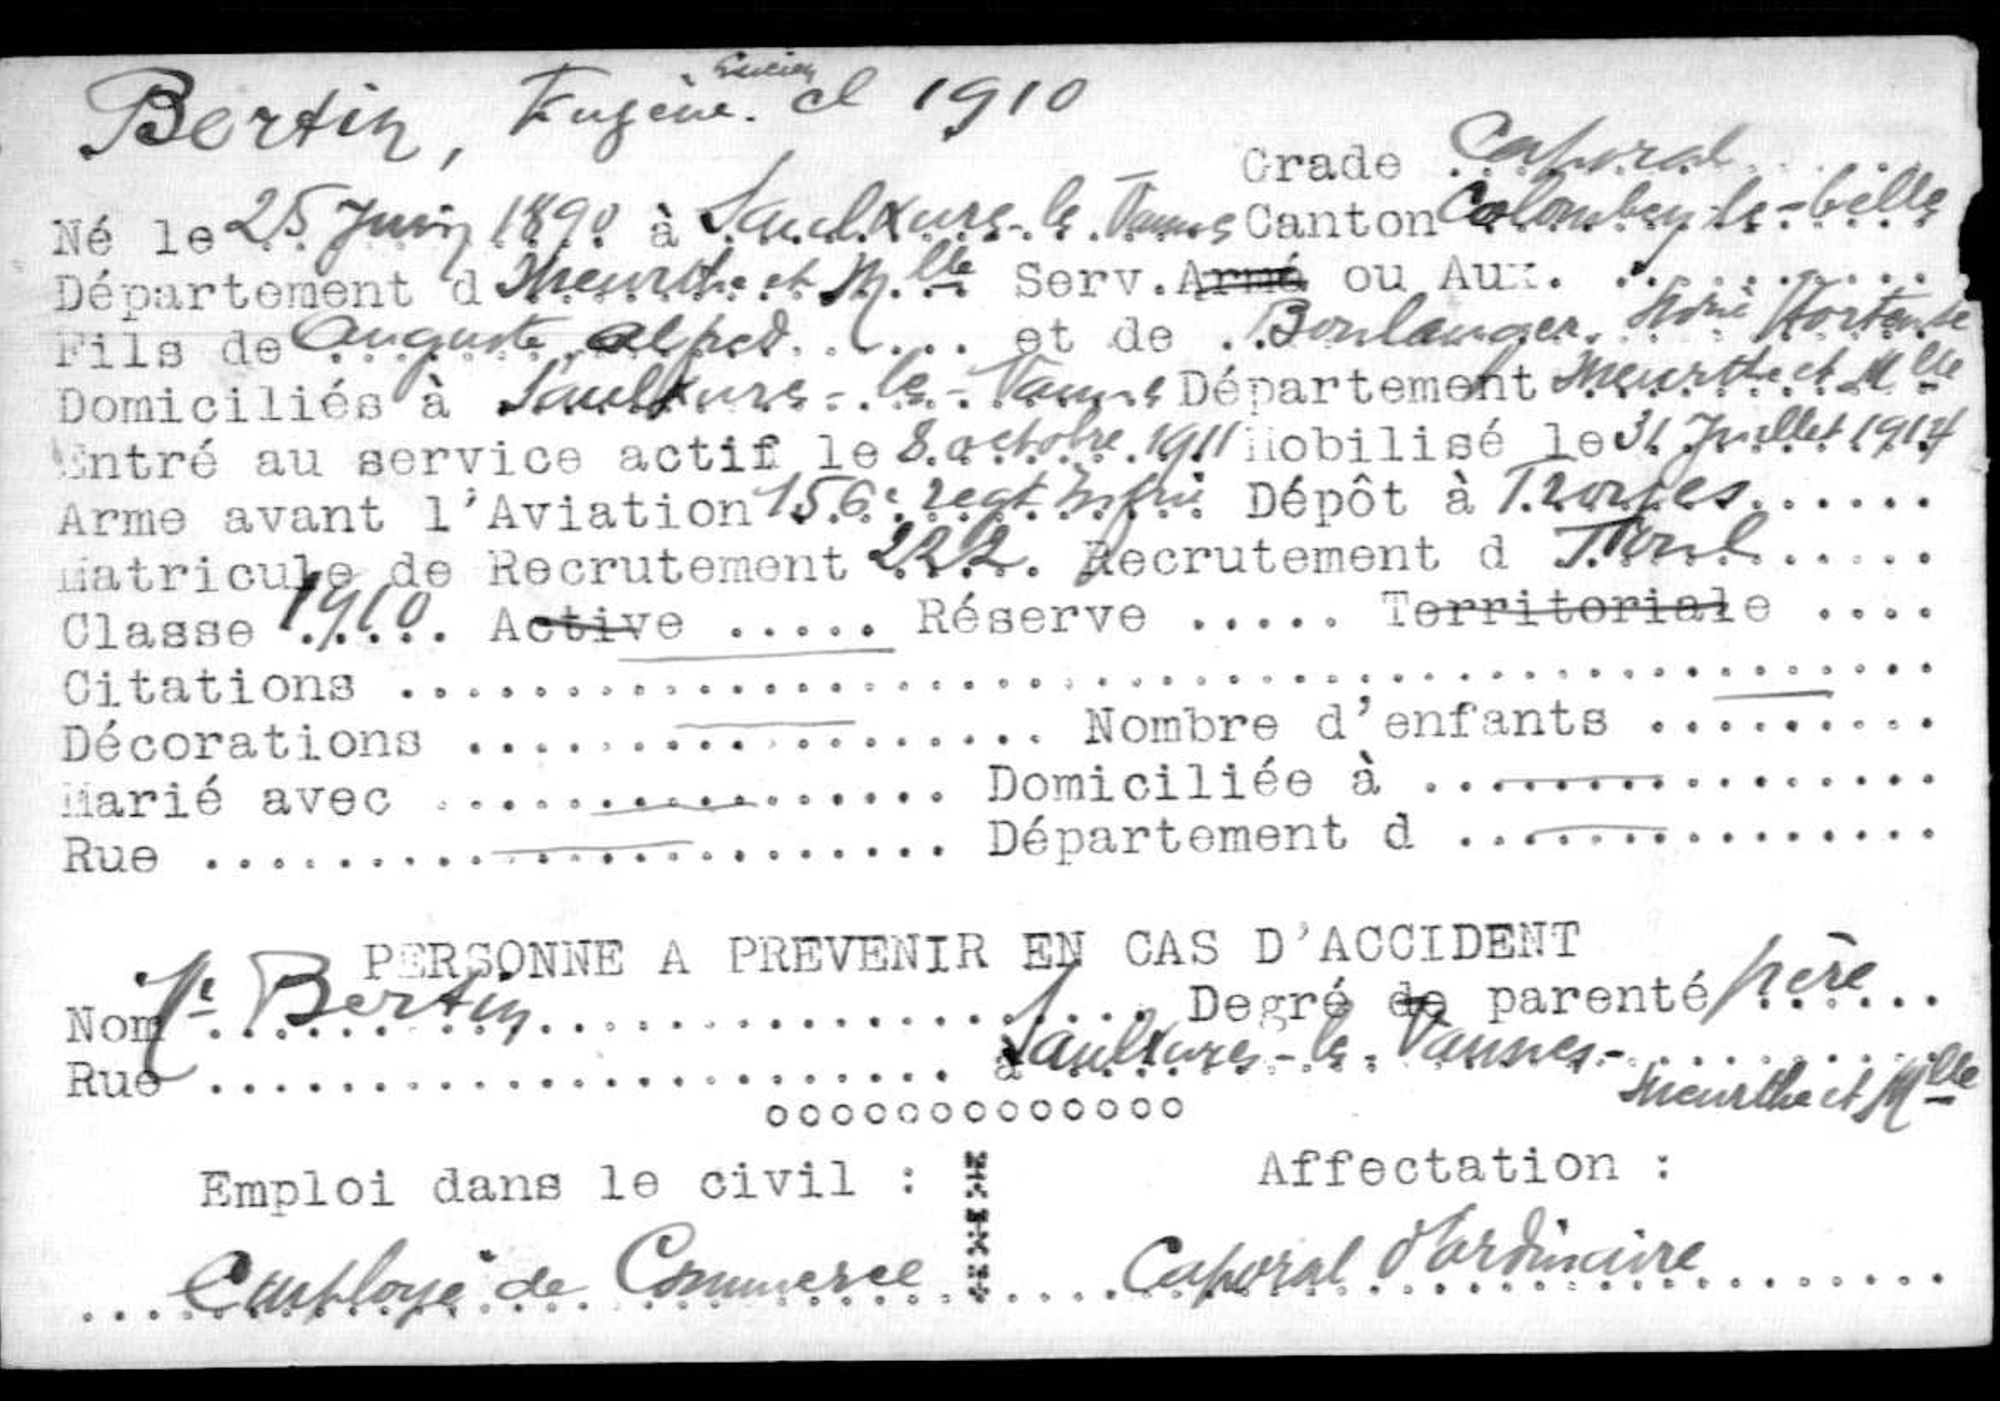 Bertin, Eugène Lucien cl 1910
Grade Caporal
Né le 25 Juin 1890 à Saulxures-les-Vannes Canton Colombey-le-belle
Département d Meurthe et Mlle Serv. Armé ou Aux. ..........
Fils de Auguste Alfred et de Boulanger, Hortense
Domiciliés à Saulxures-les-Vannes Département Meurthe et Mlle
Entré au service actif le 8 octobre 1911 Mobilisé le 31 Juillet 1914
Arme avant l'Aviation 156e regt Infrie Dépôt à Troyes
Matricule de Recrutement 222. Recrutement d Toul
Classe 1910. Active ..... Réserve ..... Territoriale ....
Citations ..........
Décorations .......... Nombre d'enfants .........
Marié avec .......... Domiciliée à ..........
Rue .......... Département d ..........
PERSONNE A PREVENIR EN CAS D'ACCIDENT
Nom Mr Bertin Degré de parenté père
Rue .......... à Saulxures-les-Vannes-
Meurthe et Mlle
ooooooooooooo
Emploi dans le civil : Affectation :
Employé de Commerce Caporal d'ordinaire